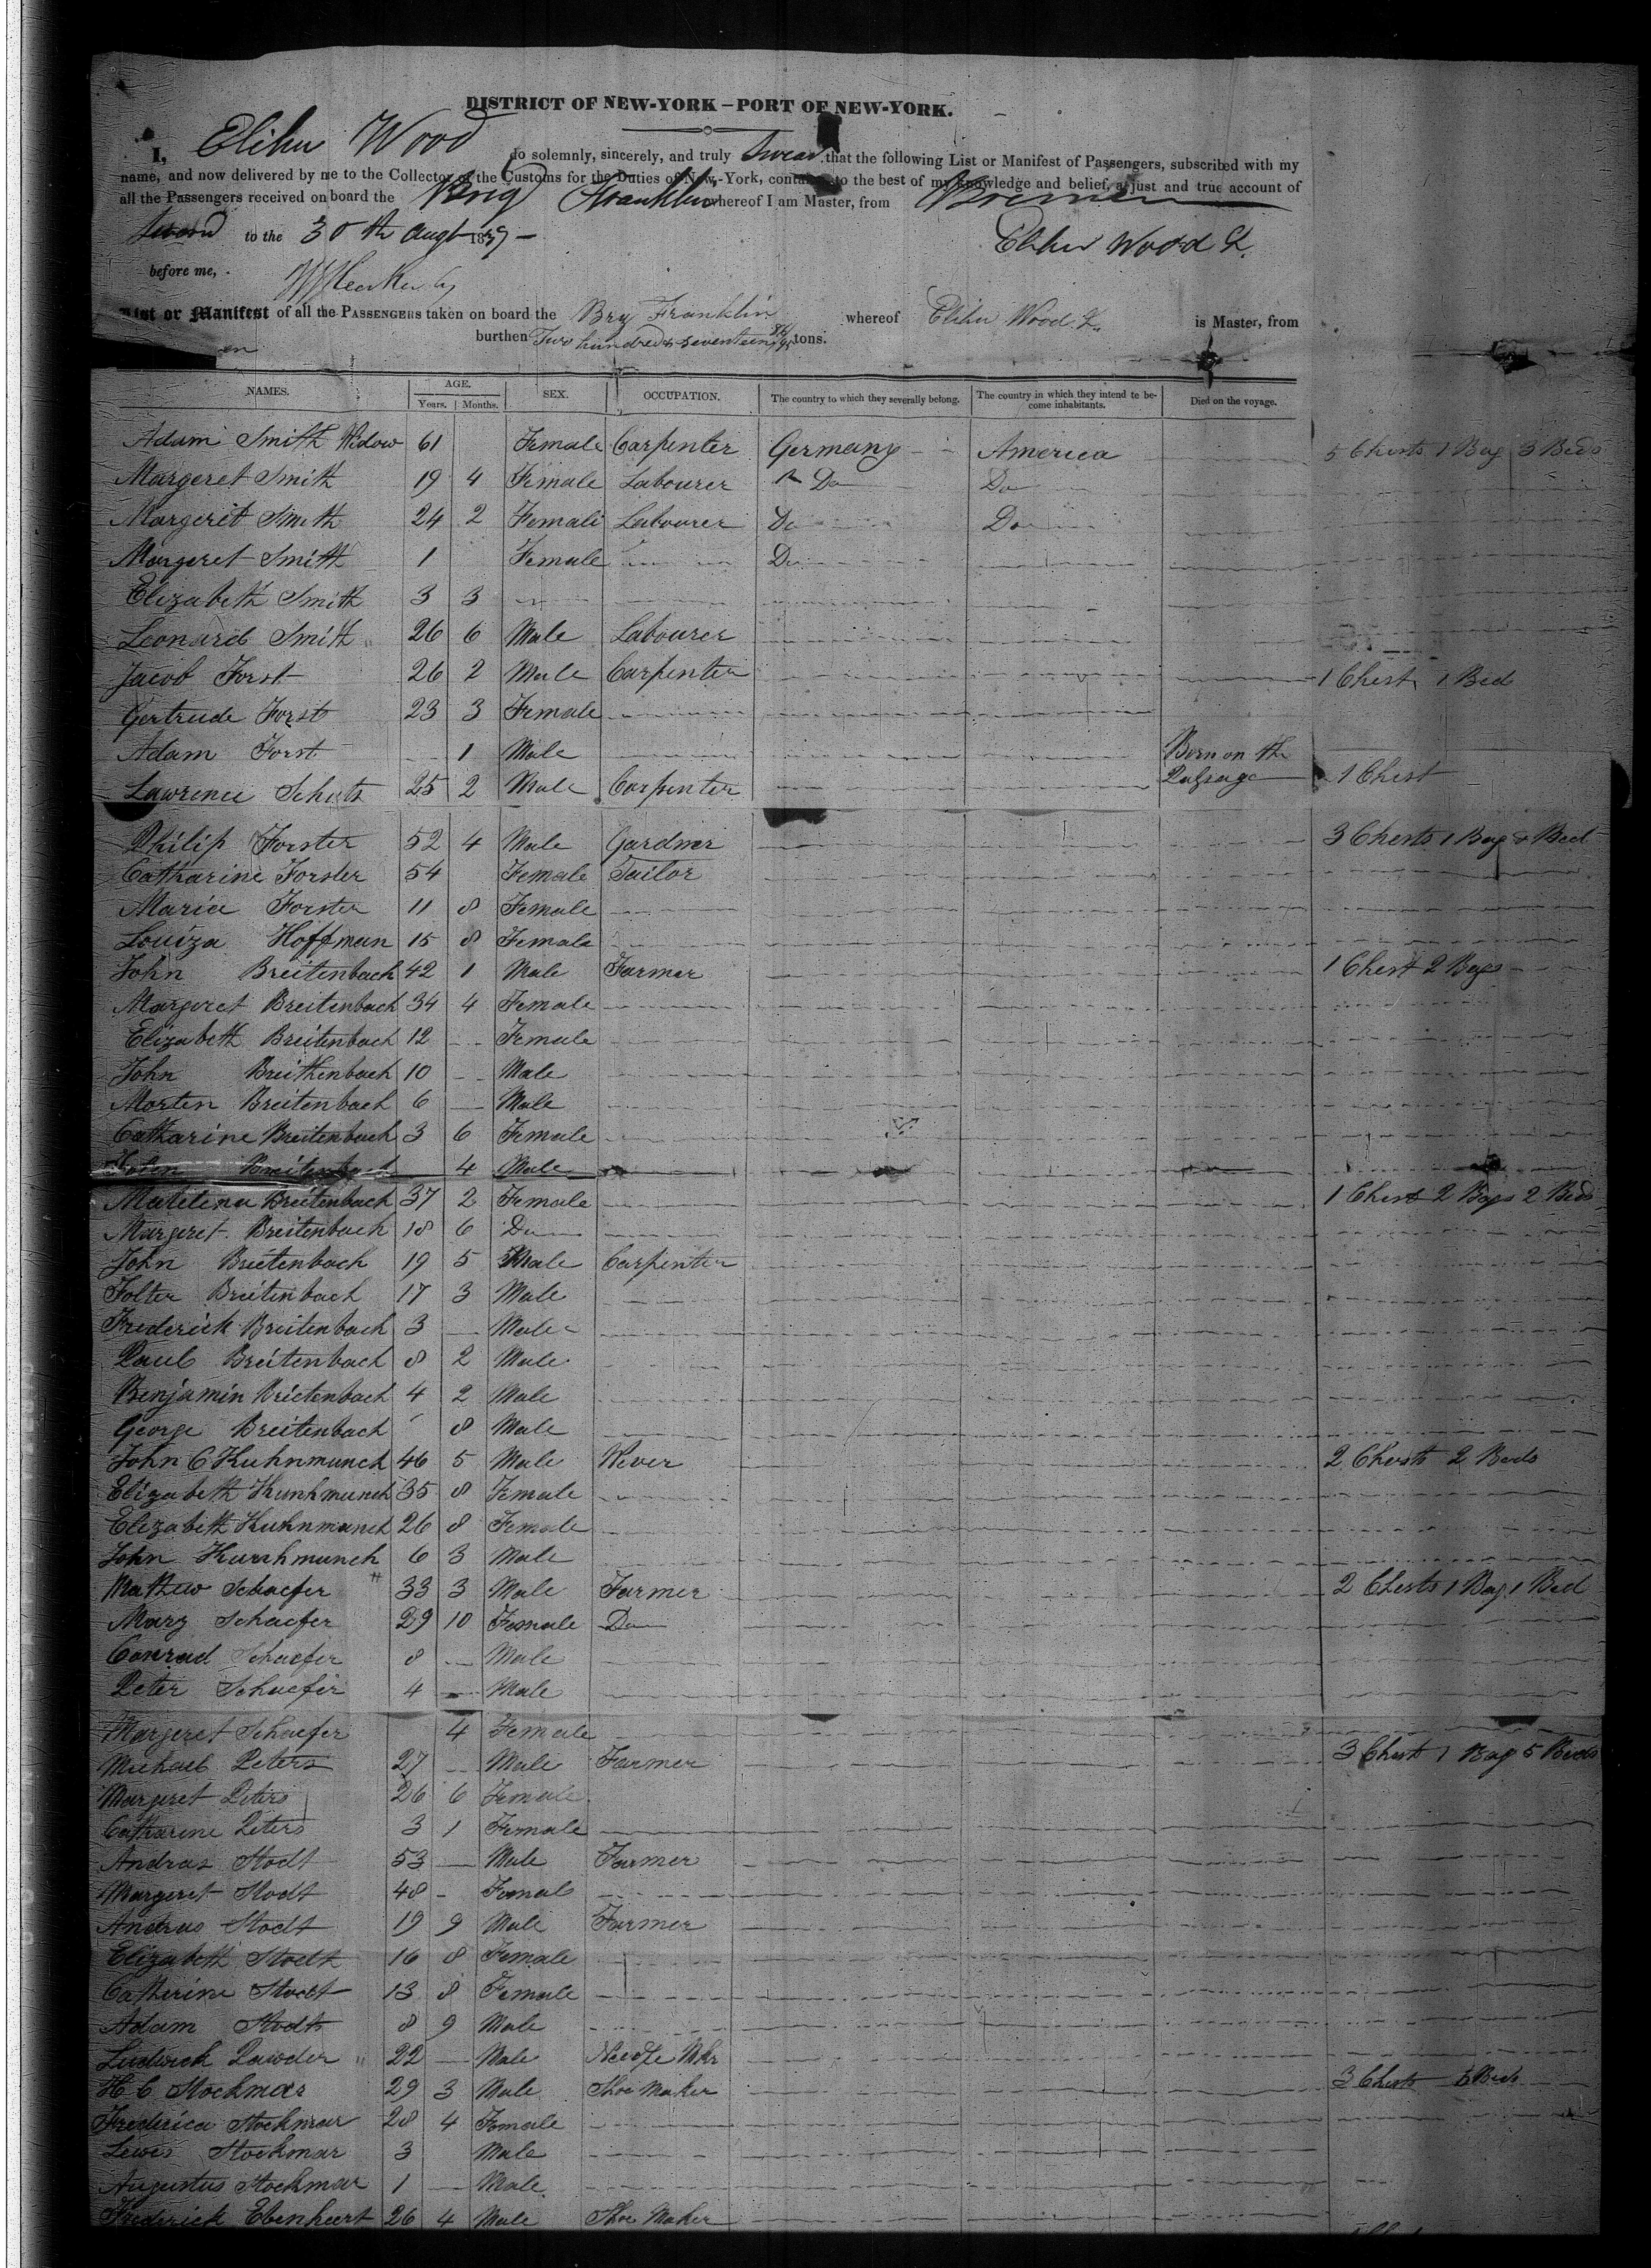 DISTRICT OF NEW-YORK—PORT OF NEW-YORK.
I, Elihu Wood do solemnly, sincerely, and truly swear that the following List or Manifest of Passengers, subscribed with my
name, and now delivered by me to the Collector of the Customs for the Duties of New-York, contains to the best of my knowledge and belief, a just and true account of
all the Passengers received on board the Brig Franklin whereof I am Master, from Bremen
Sword to the 30th Augt 1837
Elihu Wood Jr.
before me,
List or Manifest of all the PASSENGERS taken on board the Brig Franklin whereof Elihu Wood Jr. is Master, from
en burthen Two hundred & seventeen tons.
NAMES. AGE. Years. Months. SEX. OCCUPATION. The country to which they severally belong. The country in which they intend to become inhabitants. Died on the voyage.
Adam Smith Widow 61 Female Carpenter Germany America 5 Chests 1 Bag 3 Beds
Margeret Smith 19 4 Female Labourer Do Do
Margerit Smith 24 2 Female Labourer Do Do
Margeret Smith 1 Female Do
Elizabeth Smith 3 3
Leonard Smith 26 6 Male Labourer
Jacob Forst 26 2 Male Carpenter 1 Chest 1 Bed
Gertrude Forst 23 3 Female
Adam Forst 1 Male Born on the
Lawrence Schutz 25 2 Male Carpenter Passage 1 Chest
Philip Forster 52 4 Male Gardner 3 Chests 1 Bag & Bed
Catharine Forster 54 Female Tailor
Maria Forster 11 8 Female
Louiza Hoffman 15 8 Female
John Breitenbach 42 1 Male Farmer 1 Chest 2 Bags
Margeret Breitenbach 34 4 Female
Elizabeth Breitenbach 12 Female
John Breithenbach 10 Male
Morten Breitenbach 6 Male
Catharine Breitenbach 3 6 Female
John Breitenbach 4 Male
Matilena Breitenbach 37 2 Female 1 Chest 2 Bags 2 Beds
Margeret Breitenbach 18 6 Do
John Breitenbach 19 5 Male Carpenter
Folter Breitenbach 17 3 Male
Frederick Breitenbach 3 Male
Paul Breitenbach 8 2 Male
Benjamin Brietenbach 4 2 Male
George Breitenbach 8 Male
John C Kuhnmunch 46 5 Male Wever 2 Chests 2 Beds
Elizabeth Kunhmunch 35 8 Female
Elizabeth Kuhnmunch 26 8 Female
John Kurnhmunch 6 3 Male
Mathew Schaefer 33 3 Male Farmer 2 Chests 1 Bag 1 Bed
Mary Schaefer 29 10 Female Do
Conrad Schaefer 8 Male
Peter Schaefer 4 Male
Margeret Schaefer 4 Female
Michael Peters 27 Male Farmer 3 Chest 1 Bag 5 Beds
Margeret Peters 26 6 Female
Catharine Peters 3 1 Female
Andras Stodt 53 Male Farmer
Margeret Stodt 48 Female
Andras Stodt 19 9 Male Farmer
Elizabeth Stodt 16 8 Female
Catherine Stodt 13 8 Female
Adam Stodt 8 9 Male
Ludwick Pawder 22 Male Needle Mkr
H C Stockmar 29 3 Male Shoe Maker 3 Chests 5 Beds
Frederica Stockmar 28 4 Female
Lewis Stockmar 3 Male
Augustus Stockmar 1 Male
Frederick Ebenheert 26 4 Male Shoe Maker